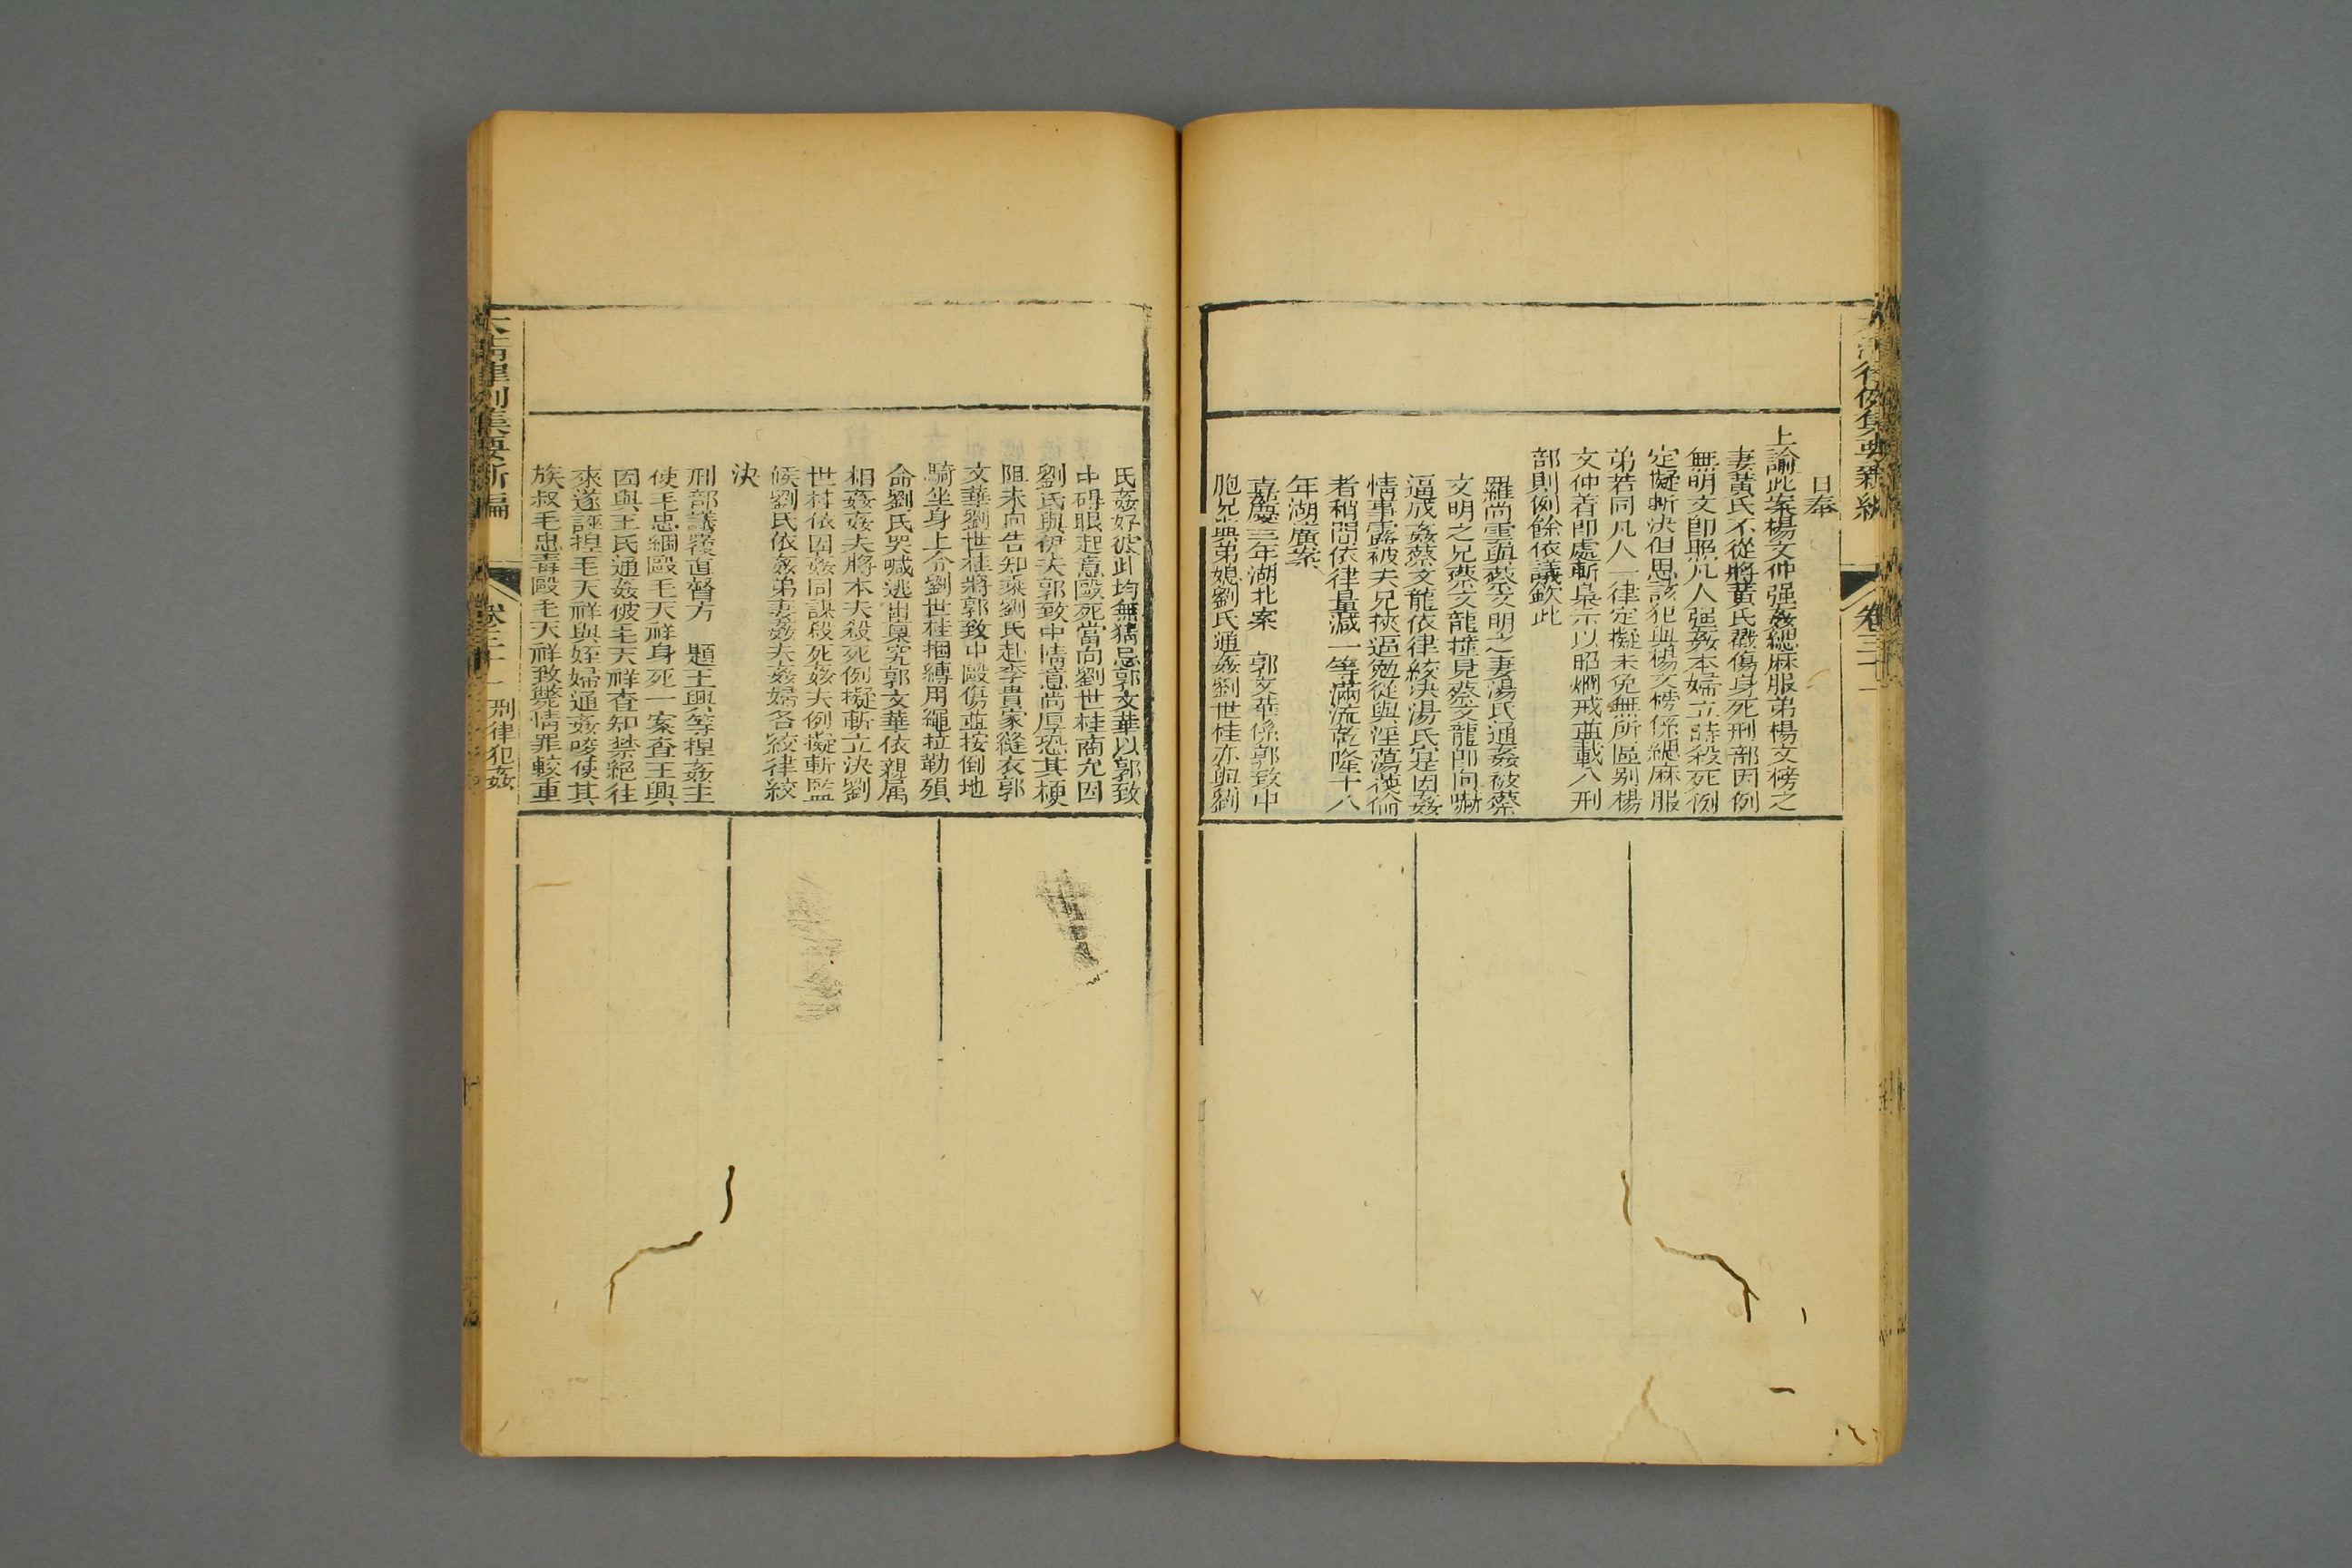 日奉
上諭此案楊文仲强姦緦麻服弟楊文榜之
妻黃氏不從將黃氏戳傷身死刑部因例
無明文卽照凡人强姦本婦立時殺死例
定擬斬決但思該犯與楊文榜係緦麻服
弟若同凡人一律定擬未免無所區别楊
文仲着卽處斬梟示以昭烱戒並載入刑
部則例餘依議欽此
羅尚雲與蔡文明之妻湯氏通姦被蔡
文明之兄蔡文龍撞見蔡文龍卽向嚇
逼成姦蔡文龍依律絞決湯氏寔因姦
情事露被夫兄挾逼勉從與淫蕩瀆倫
者稍間依律量減一等滿流乾隆十八
年湖廣案
嘉慶三年湖北案 郭文華係郭致中
胞兄與弟媳劉氏通姦劉世桂亦與劉
氏姦好彼此均無猜忌郭文華以郭致
中碍眼起意毆死當向劉世桂商允因
劉氏與伊夫郭致中情意尚厚恐其梗
阻未向告知乘劉氏赴李貴家縫衣郭
文華劉世桂將郭致中毆傷並按倒地
騎坐身上令劉世桂捆縛用繩拉勒殞
命劉氏哭喊逃出稟究郭文華依親属
相姦姦夫將本夫殺死例擬斬立決劉
世桂依因姦同謀殺死姦夫例擬斬監
候劉氏依姦弟妻姦夫姦婦各絞律絞
決
刑部議覆直督方 題王興等捏姦主
使毛忠綑毆毛天祥身死一案查王興
因與王氏通姦彼毛天祥查知禁絕往
來遂誣捏毛天祥與姪婦通姦唆使其
族叔毛忠毒毆毛天祥致斃情罪較重
大清律例集要新編 卷三十一 刑律犯姦